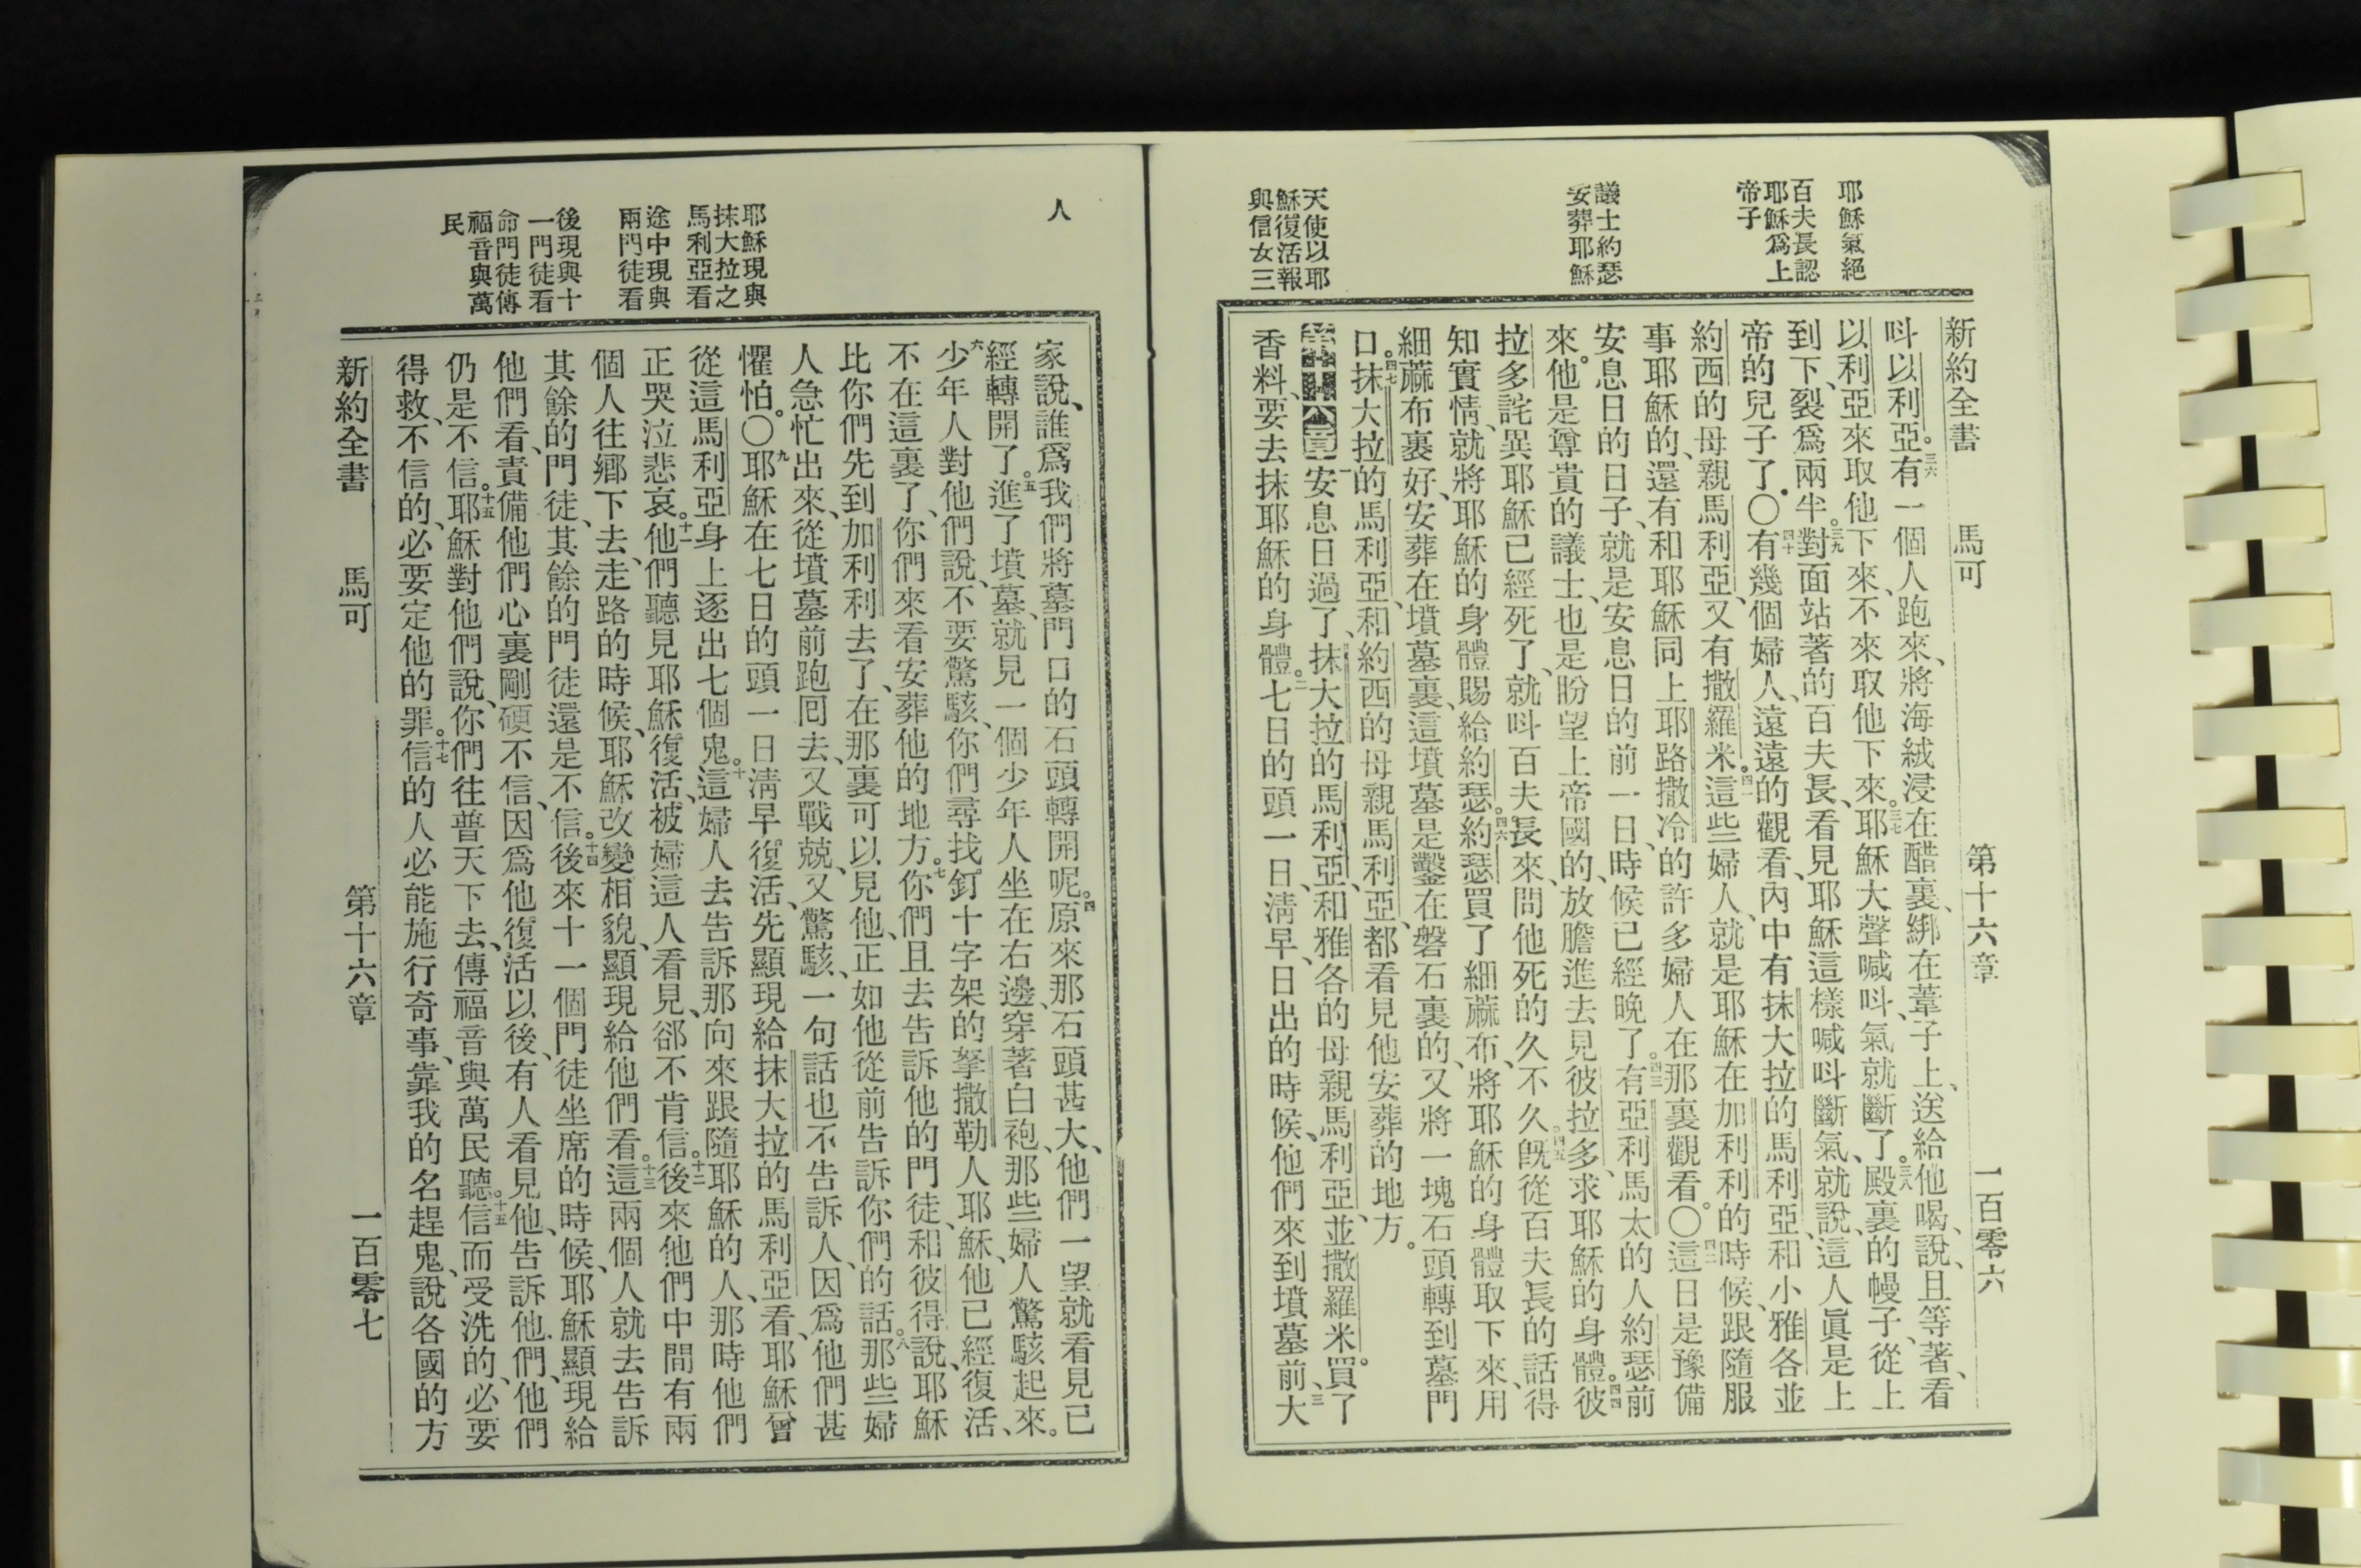 耶穌氣絕
百夫長認
耶穌爲上
帝子
議士約瑟
安葬耶穌
天使以耶
穌復活報
與信女三
新約全書 馬可 第十六章 一百零六
呌以利亞。三六有一個人跑來、將海絨浸在醋裏、綁在葦子上、送給他喝、說、且等著、看
以利亞來取他下來、不來取他下來。三七耶穌大聲喊呌、氣就斷了。三八殿裏的幔子、從上
到下、裂爲兩半。三九對面站著的百夫長、看見耶穌這樣喊呌斷氣、就說、這人眞是上
帝的兒子了。〇四十有幾個婦人、遠遠的觀看、內中有抹大拉的馬利亞、和小雅各並
約西的母親馬利亞、又有撒羅米。四一這些婦人、就是耶穌在加利利的時候、跟隨服
事耶穌的、還有和耶穌同上耶路撒冷的許多婦人在那裏觀看。〇四二這日是豫備
安息日的日子、就是安息日的前一日、時候已經晚了。四三有亞利馬太的人約瑟前
來。他是尊貴的議士、也是盼望上帝國的、放膽進去見彼拉多、求耶穌的身體。四四彼
拉多詫異耶穌已經死了、就呌百夫長來、問他死的久不久。四五旣從百夫長的話得
知實情、就將耶穌的身體賜給約瑟。四六約瑟買了細蔴布、將耶穌的身體取下來、用
細蔴布裹好、安葬在墳墓裏、這墳墓是鑿在磐石裏的、又將一塊石頭轉到墓門
口。四七抹大拉的馬利亞、和約西的母親馬利亞、都看見他安葬的地方。
第十六章一安息日過了、抹大拉的馬利亞、和雅各的母親馬利亞、並撒羅米。買了
香料、要去抹耶穌的身體。二七日的頭一日、淸早、日出的時候、他們來到墳墓前、三大
人
耶穌現與
抹大拉之
馬利亞看
途中現與
兩門徒看
後現與十
一門徒看
命門徒傳
福音與萬
民
家說、誰爲我們將墓門口的石頭轉開呢。四原來那石頭甚大、他們一望就看見已
經轉開了。五進了墳墓、就見一個少年人坐在右邊、穿著白袍、那些婦人驚駭起來。
六少年人對他們說、不要驚駭、你們尋找釘十字架的拏撒勒人耶穌、他已經復活、
不在這裏了、你們來看安葬他的地方。七你們且去告訴他的門徒、和彼得說、耶穌
比你們先到加利利去了、在那裏可以見他、正如他從前告訴你們的話。八那些婦
人急忙出來、從墳墓前跑囘去、又戰兢、又驚駭、一句話也不告訴人、因爲他們甚
懼怕。〇九耶穌在七日的頭一日淸早、復活、先顯現給抹大拉的馬利亞看、耶穌曾
從這馬利亞身上逐出七個鬼。十這婦人去告訴那向來跟隨耶穌的人、那時他們
正哭泣悲哀。十一他們聽見耶穌復活、被婦這人看見、郤不肯信。十二後來他們中間有兩
個人往鄕下去、走路的時候、耶穌改變相貌、顯現給他們看。十三這兩個人就去告訴
其餘的門徒、其餘的門徒還是不信。十四後來十一個門徒坐席的時候、耶穌顯現給
他們看、責備他們心裏剛硬不信、因爲他復活以後、有人看見他、告訴他們、他們
仍是不信。十五耶穌對他們說、你們往普天下去、傳福音與萬民聽。十五信而受洗的、必要
得救、不信的、必要定他的罪。十七信的人必能施行奇事、靠我的名趕鬼、說各國的方
新約全書 馬可 第十六章 一百零七